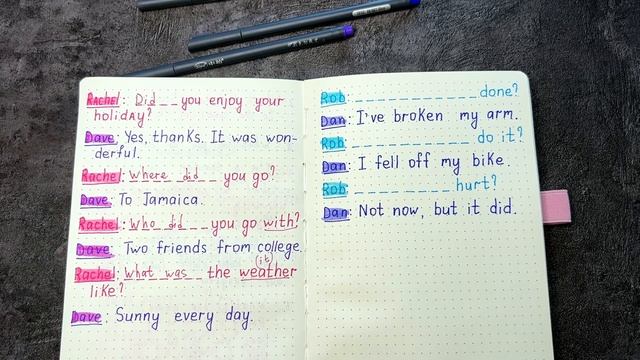 Rachel: Did__you enjoy your
holiday?
Dave: Yes, thanks. It was won-
derful.
Rachel: Where did__you go?
Dave: To Jamaica.
Rachel: Who did__you go with?
Dave: Two friends from college.
(it)
Rachel: What was__the weather
like?
Dave: Sunny every day.
Rob: ____________done?
Dan: I've broken my arm.
Rob: ____________do it?
Dan: I fell off my bike.
Rob: __________hurt?
Dan: Not now, but it did.